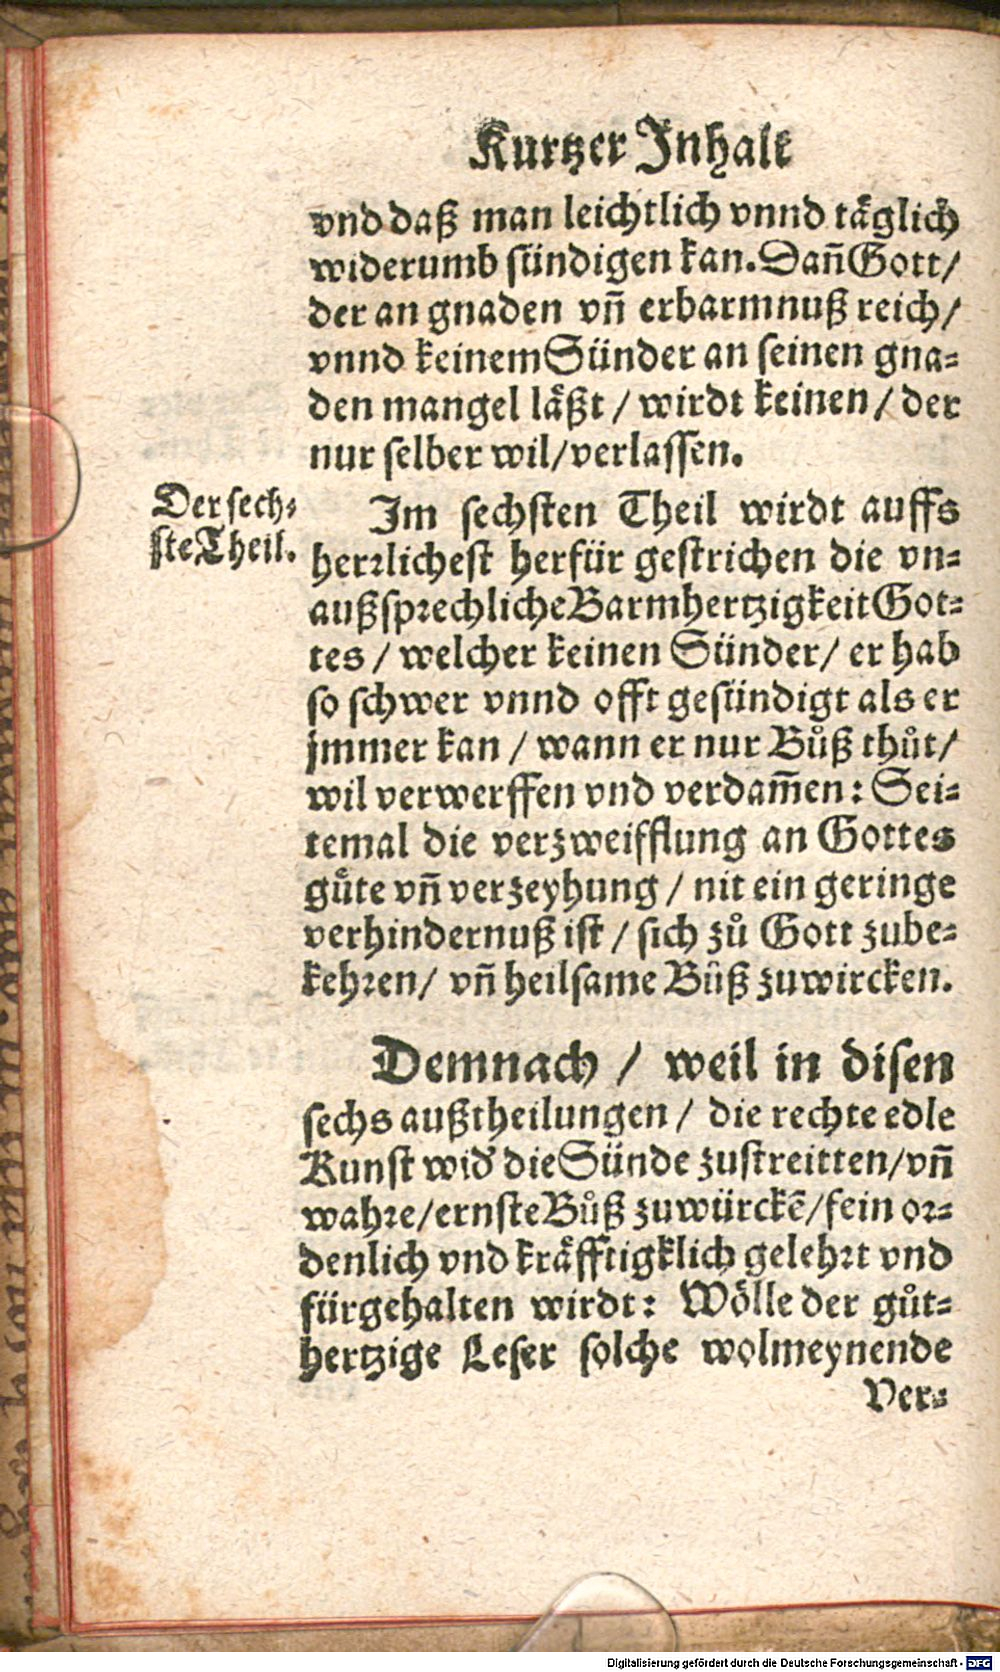 Kurtzer Inhalt
vnd daß man leichtlich vnnd täglich
widerumb sündigen kan. Dañ Gott/
der an gnaden vñ erbarmnuß reich/
vnnd keinem Sünder an seinen gna-
den mangel läßt / wirdt keinen / der
nur selber wil/verlassen.
Der sech-
ste Theil.
Im sechsten Theil wirdt auffs
herrlichest herfür gestrichen die vn-
außsprechliche Barmhertzigkeit Got-
tes / welcher keinen Sünder/ er hab
so schwer vnnd offt gesündigt als er
jmmer kan / wann er nur Bůß thůt/
wil verwerffen vnd verdam̃en: Sei-
temal die verzweifflung an Gottes
güte vñ verzeyhung / nit ein geringe
verhindernuß ist / sich zů Gott zube-
kehren/ vñ heilsame Bůß zuwircken.
Demnach / weil in disen
sechs außtheilungen / die rechte edle
Kunst wid̕ die Sünde zustreitten/vñ
wahre/ernste Bůß zuwürckẽ/fein or-
denlich vnd kräfftigklich gelehrt vnd
fürgehalten wirdt: Wölle der gůt-
hertzige Leser solche wolmeynende
Ver-
Digitalisierung gefördert durch die Deutsche Forschungsgemeinschaft - DFG